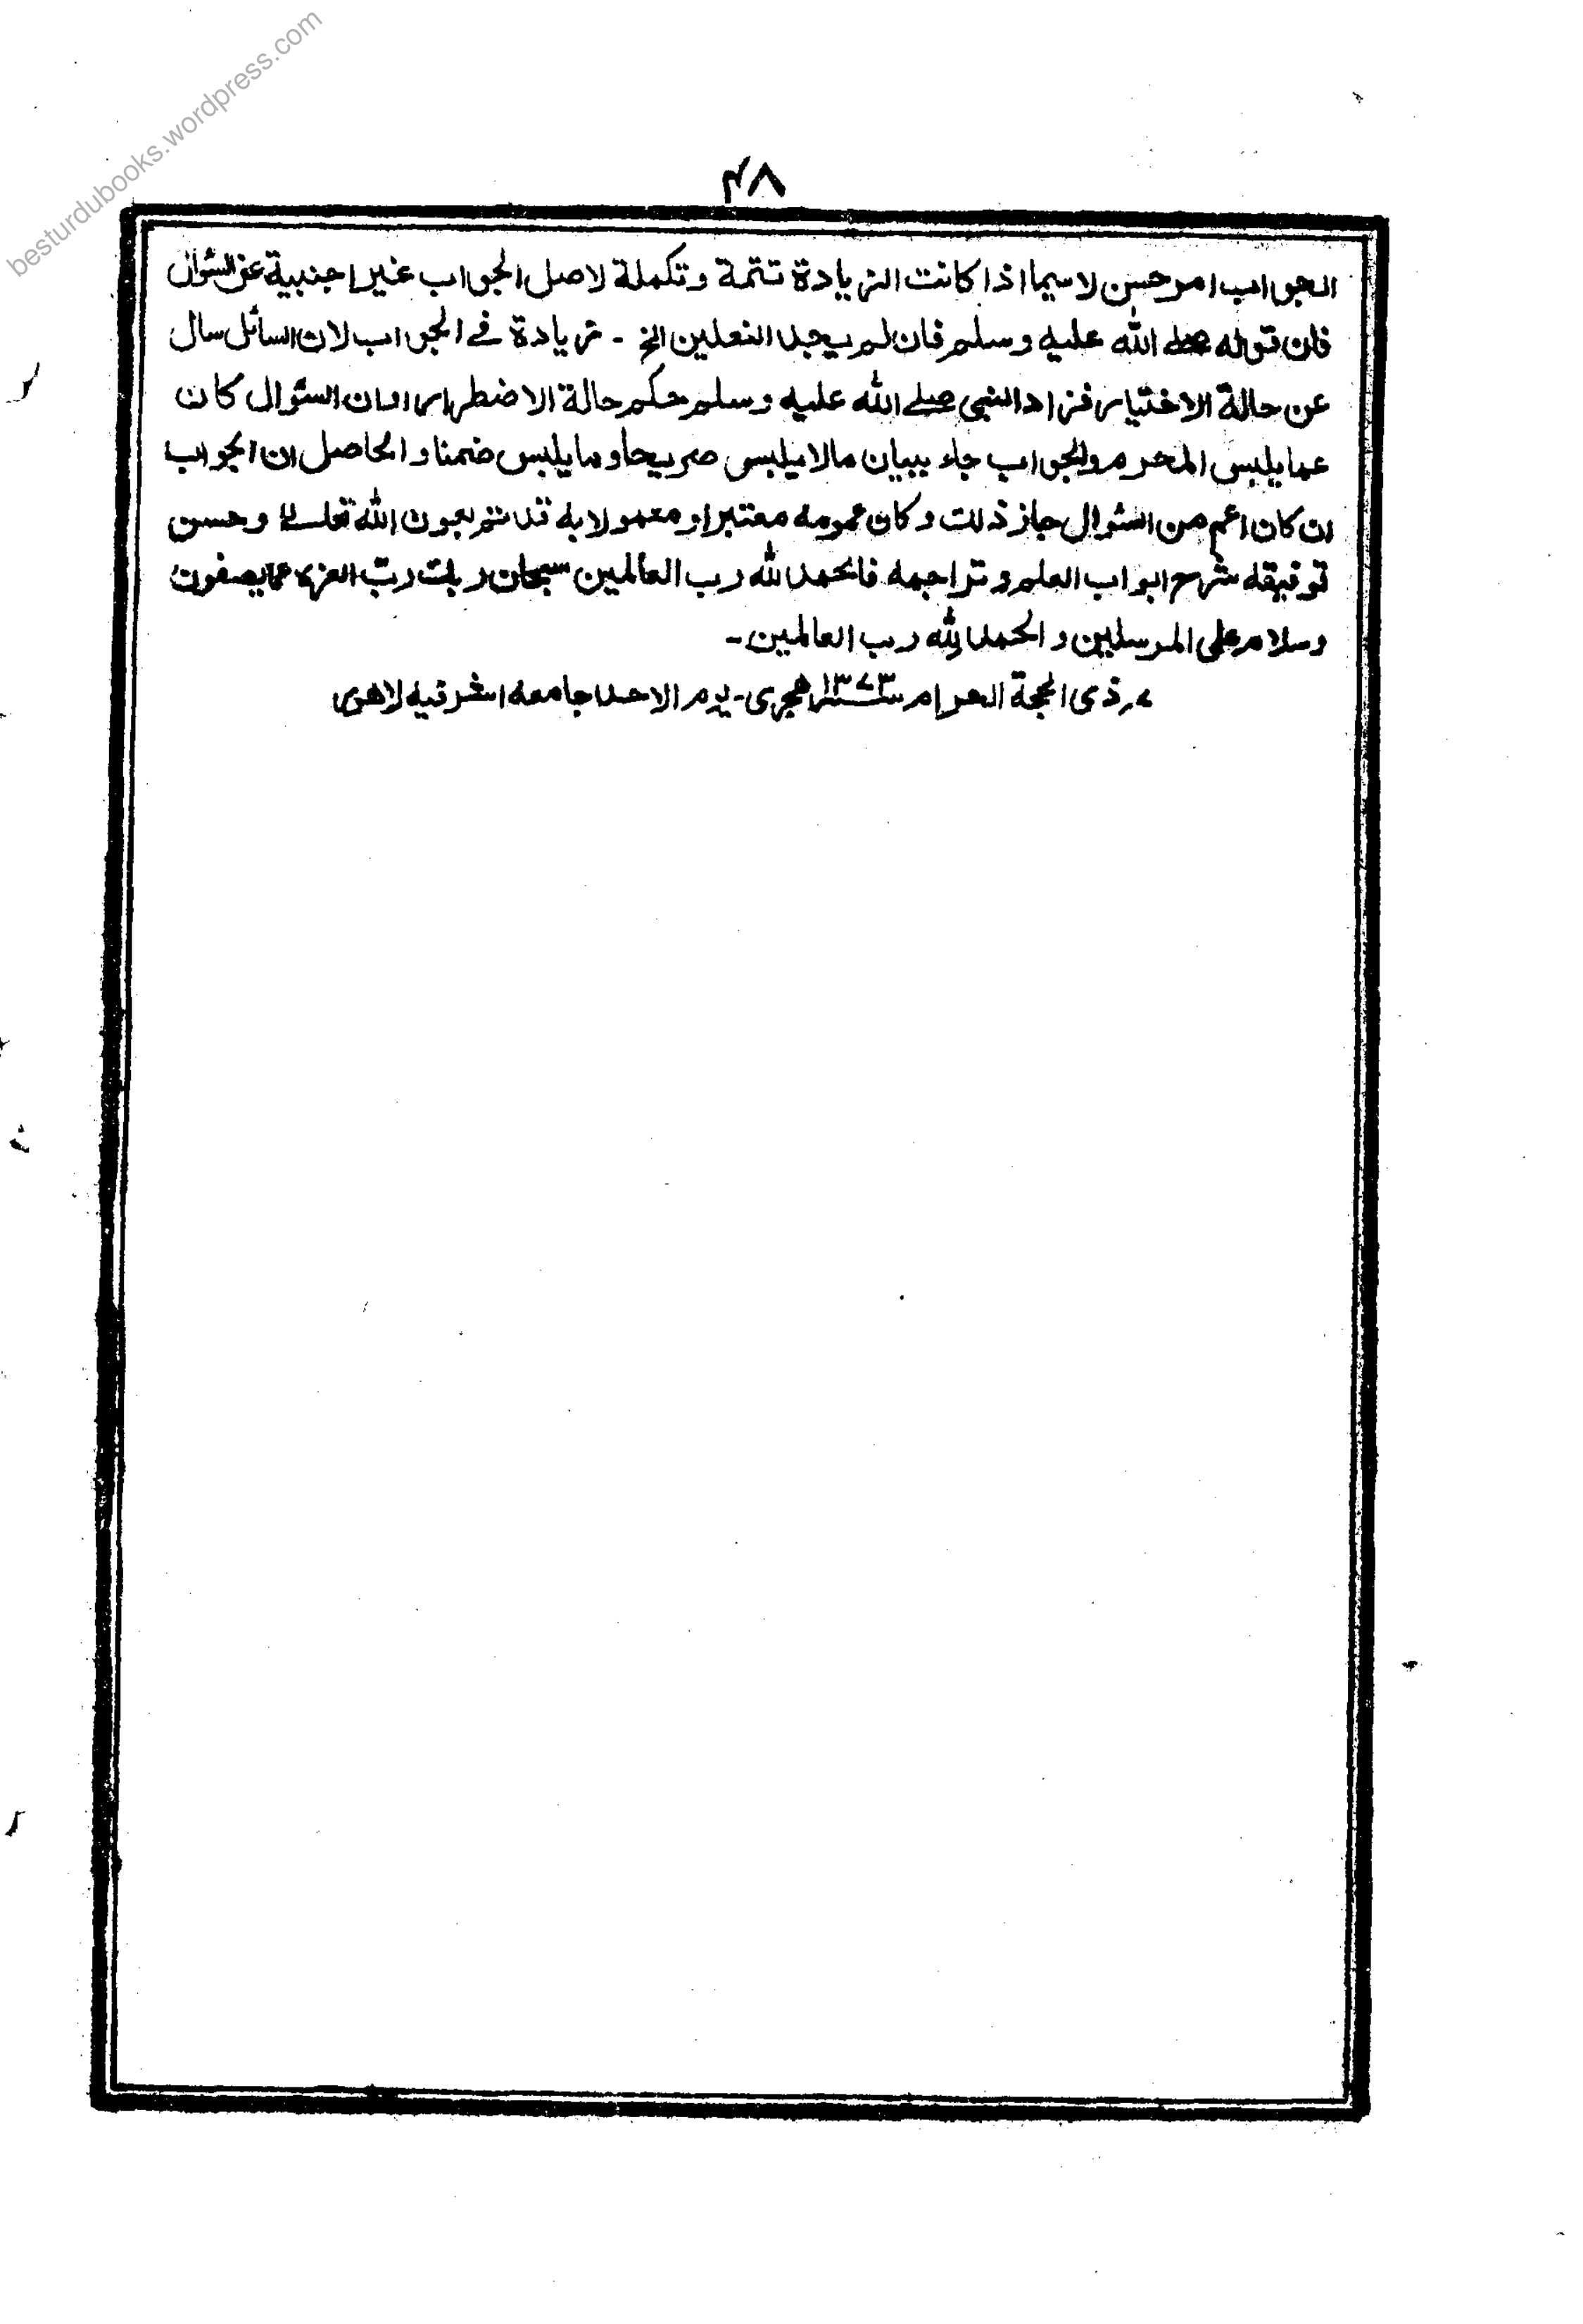 besturdubooks.wordpress.com
۴۸
الجواب امر حسن لا سيما اذا كانت الزيادة تتمة وتكملة لاصل الجواب غير اجنبية عن السؤال
فان قوله صلے الله عليه وسلم فان لم يجد النعلين الخ ـ زيادة فے الجواب لان السائل سال
عن حالة الاختيار فزاد النبى صلے الله عليه وسلم حكم حالة الاضطرار السؤال كان
عما يلبس المحرم والجواب جاء ببيان مالا يلبس صريحا وما يلبس ضمنا والحاصل ان الجواب
ان كان اعم من السؤال جاز ذلك وكان عمومه معتبرا ومعمولا به قد تم بعون الله تعالےٰ وحسن
توفيقه شرح ابواب العلم وتراجمه فالحمد لله رب العالمين سبحان ربك ربّ العزة عما يصفون
وسلام على المرسلين والحمد لله رب العالمين ـ
۷ر ذى الحجة الحرام سنہ ۱۳۷۳ هجرى ـ يوم الاحد جامعه اشرفيه لاهور